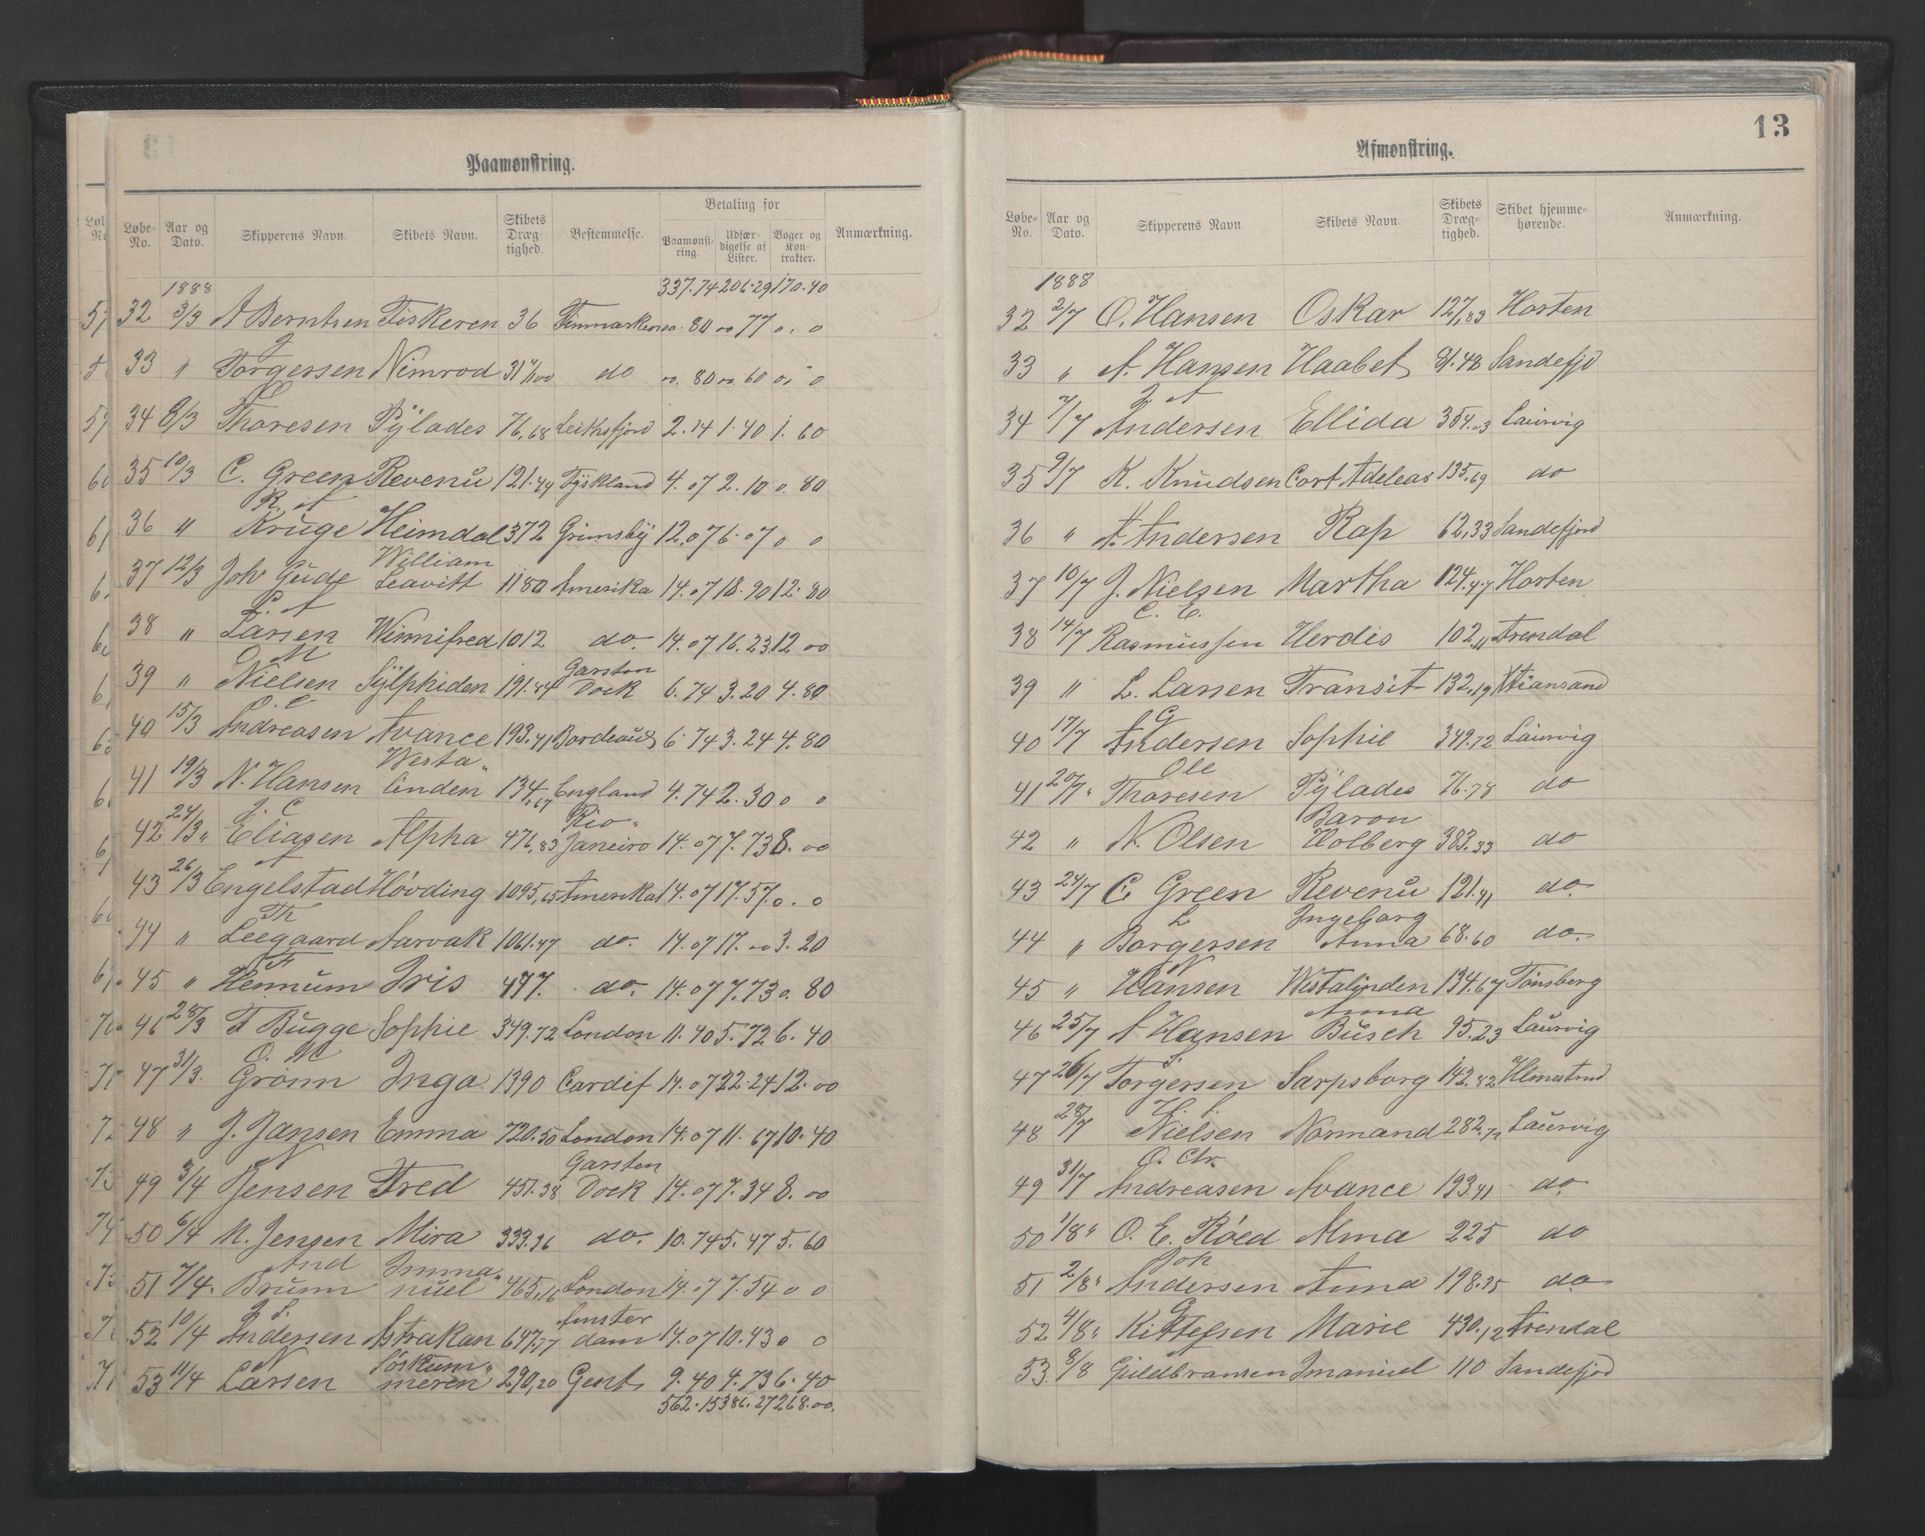 Paamønstring.
Løbe-No. Aar og Dato. Skipperens Navn. Skibets Navn. Skibets Dræg-tighed. Bestemmelse. Betaling for Paamønst-ring. Udfær-digelse af Lister. Bøger og Kon-trakter. Anmærkning.
1888 337.74 206.29 170.40
32 3/3 A Berntsen Fiskeren 36 Finmarken 00.80 00 77 0. 0
33 " J Torgersen Nimrod 31 do 00.80 00.60 0
34 8/3 C Thoresen Pÿlades 76,68 Leithsfjord 2.14 1.40 1.60
35 10/3 C. Green Revenu 121.44 Tÿskland 4.07 2.10 0.80
36 " R. A Kruge Heimdal 372 Grimsbÿ 12.07 6.07 0 0
37 12/3 Joh Gude William Leavitt 1180 Amerika 14.07 18.90 12.80
38 " L. A Larsen Winnifred 1012 do. 14.07 16.23 12 00
39 " O. M Nielsen Sÿlphiden 191.44 Garston Dock 6.74 3.20 4.80
40 15/3 O. C Andreasen Avance 193.41 Bordeaux 6.74 3.24 4.80
41 19/3 N. Hansen Westa„linden 134,67 England 4.74 2.30 0 0
42 24/3 J. C Eliasen Alpha 476,83 Rio„Janeiro 14.07 7.73 8.00
43 26/3 A Engelstad Høvding 1095,65 Amerika 14.07 17.57 0. 0
44 " Th Leegaard Aarvak 1061.47 do. 14.07 17.00 3.20
45 " F Hennum Iris 477. do. 14.07 7.73 0.80
46 28/3 F Bugge Sophie 349.72 London 11.40 5.72 6.40
47 31/3. O. M Grønn Inga 1390 Cardif 14.07 22.24 12.00
48 " J. Jansen Emma 720.50 London 14.07 11.67 10.40
49 3/4 N Jensen Fred 451.38 Garsten Dock 14.07 7.34 8.00
50 6/4 M. Jensen Mira 333.36 do. 10.74 5.47 5.60
51 7/4. And Brunn Imma„nuel 465,16 London 14.07 7.54 0 0
52 10/4 J. S. Andersen Astrakan 647.77 Amster dam 14.07 10.43 0 0
53 11/4 N Larsen Søskum„meren 290,20 Gent 9.40 4.73 6.40
562.15 386.27 268.00.
13
Afmønstring.
Løbe-No. Aar og Dato. Skipperens Navn. Skibets Navn. Skibets Dræg-tighed. Skibet hjemme-hørende. Anmærkning.
1888
32 2/7 O. Hansen Oskar 127,83 Horten
33 " A. Hansen Haabet 81.48 Sandefjd
34 7/7 J. A Andersen Ellida 354.03 Laurvig
35 9/7 K. Knudsen Cort Adelear 135.69 do
36 " A. Andersen Rap 62,33 Sandefjord
37 10/7 J. Nielsen Martha 124.47 Horten
38 14/7 C. E. Rasmussen Herdis 102,11 Arendal
39 " L. Larsen Transit 132,19 Xtiansand
40 17/7 G Andersen Sophie 349.72 Laurvig
41 20/7 Ole Thoresen Pÿlades 76.78 do
42 " N. Olsen Baron Holberg 383.33 do
43 24/7 C Green Revenu 121.41 do.
44 " L Borgersen Ingeborg Anna 68.60 do.
45 " N Hansen Westalinden 134.67 Tønsberg
46 25/7 A Hansen Anna Busch 95.23 Laurvig
47 26/7 S. Torgersen Sarpsborg 142.82 Holmestrnd
48 28/7 H. L. Nielsen Normand 282.72 Laurvig
49 31/7 O. Chr. Andreasen Avance 193.41 do.
50 1/8 O. E. Røed Alma 225 do
51 2/8 Joh Andersen Anna 198.25 do
52 4/8 G Kittelsen Marie 430.12 Arendal
53. 8/8 A Guldbransen Imanuel 110 Sandefjod